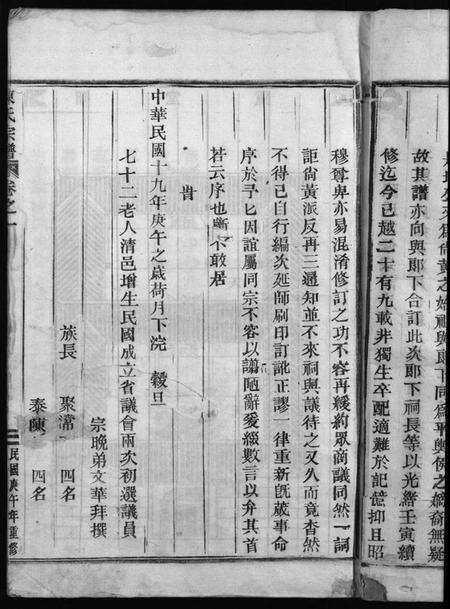 故其譜亦向與郎下合訂此次郎下祠長等以光緒壬寅續
修迄今已越二十有九載非獨生卒配適難於記憶抑且昭
穆尊卑亦易混淆修訂之功不容再緩約眾商議同然一詞
詎尚黃派反再三通知並不來祠與議待之又久而竟杳然
不得已自行編次延師刷印訂訛正謬一律重新旣蕆事命
序於予匕因誼屬同宗不容以譾陋辭爰綴數言以弁其首
若云序也斷不敢居
旹
中華民國十九年庚午之歲荷月下浣 穀旦
七十二老人清邑增生民國成立省議會兩次初選議員
宗晚弟文華拜撰
族長 聚 四名
泰 四名
氏宗譜 卷之一
民國庚午年重修